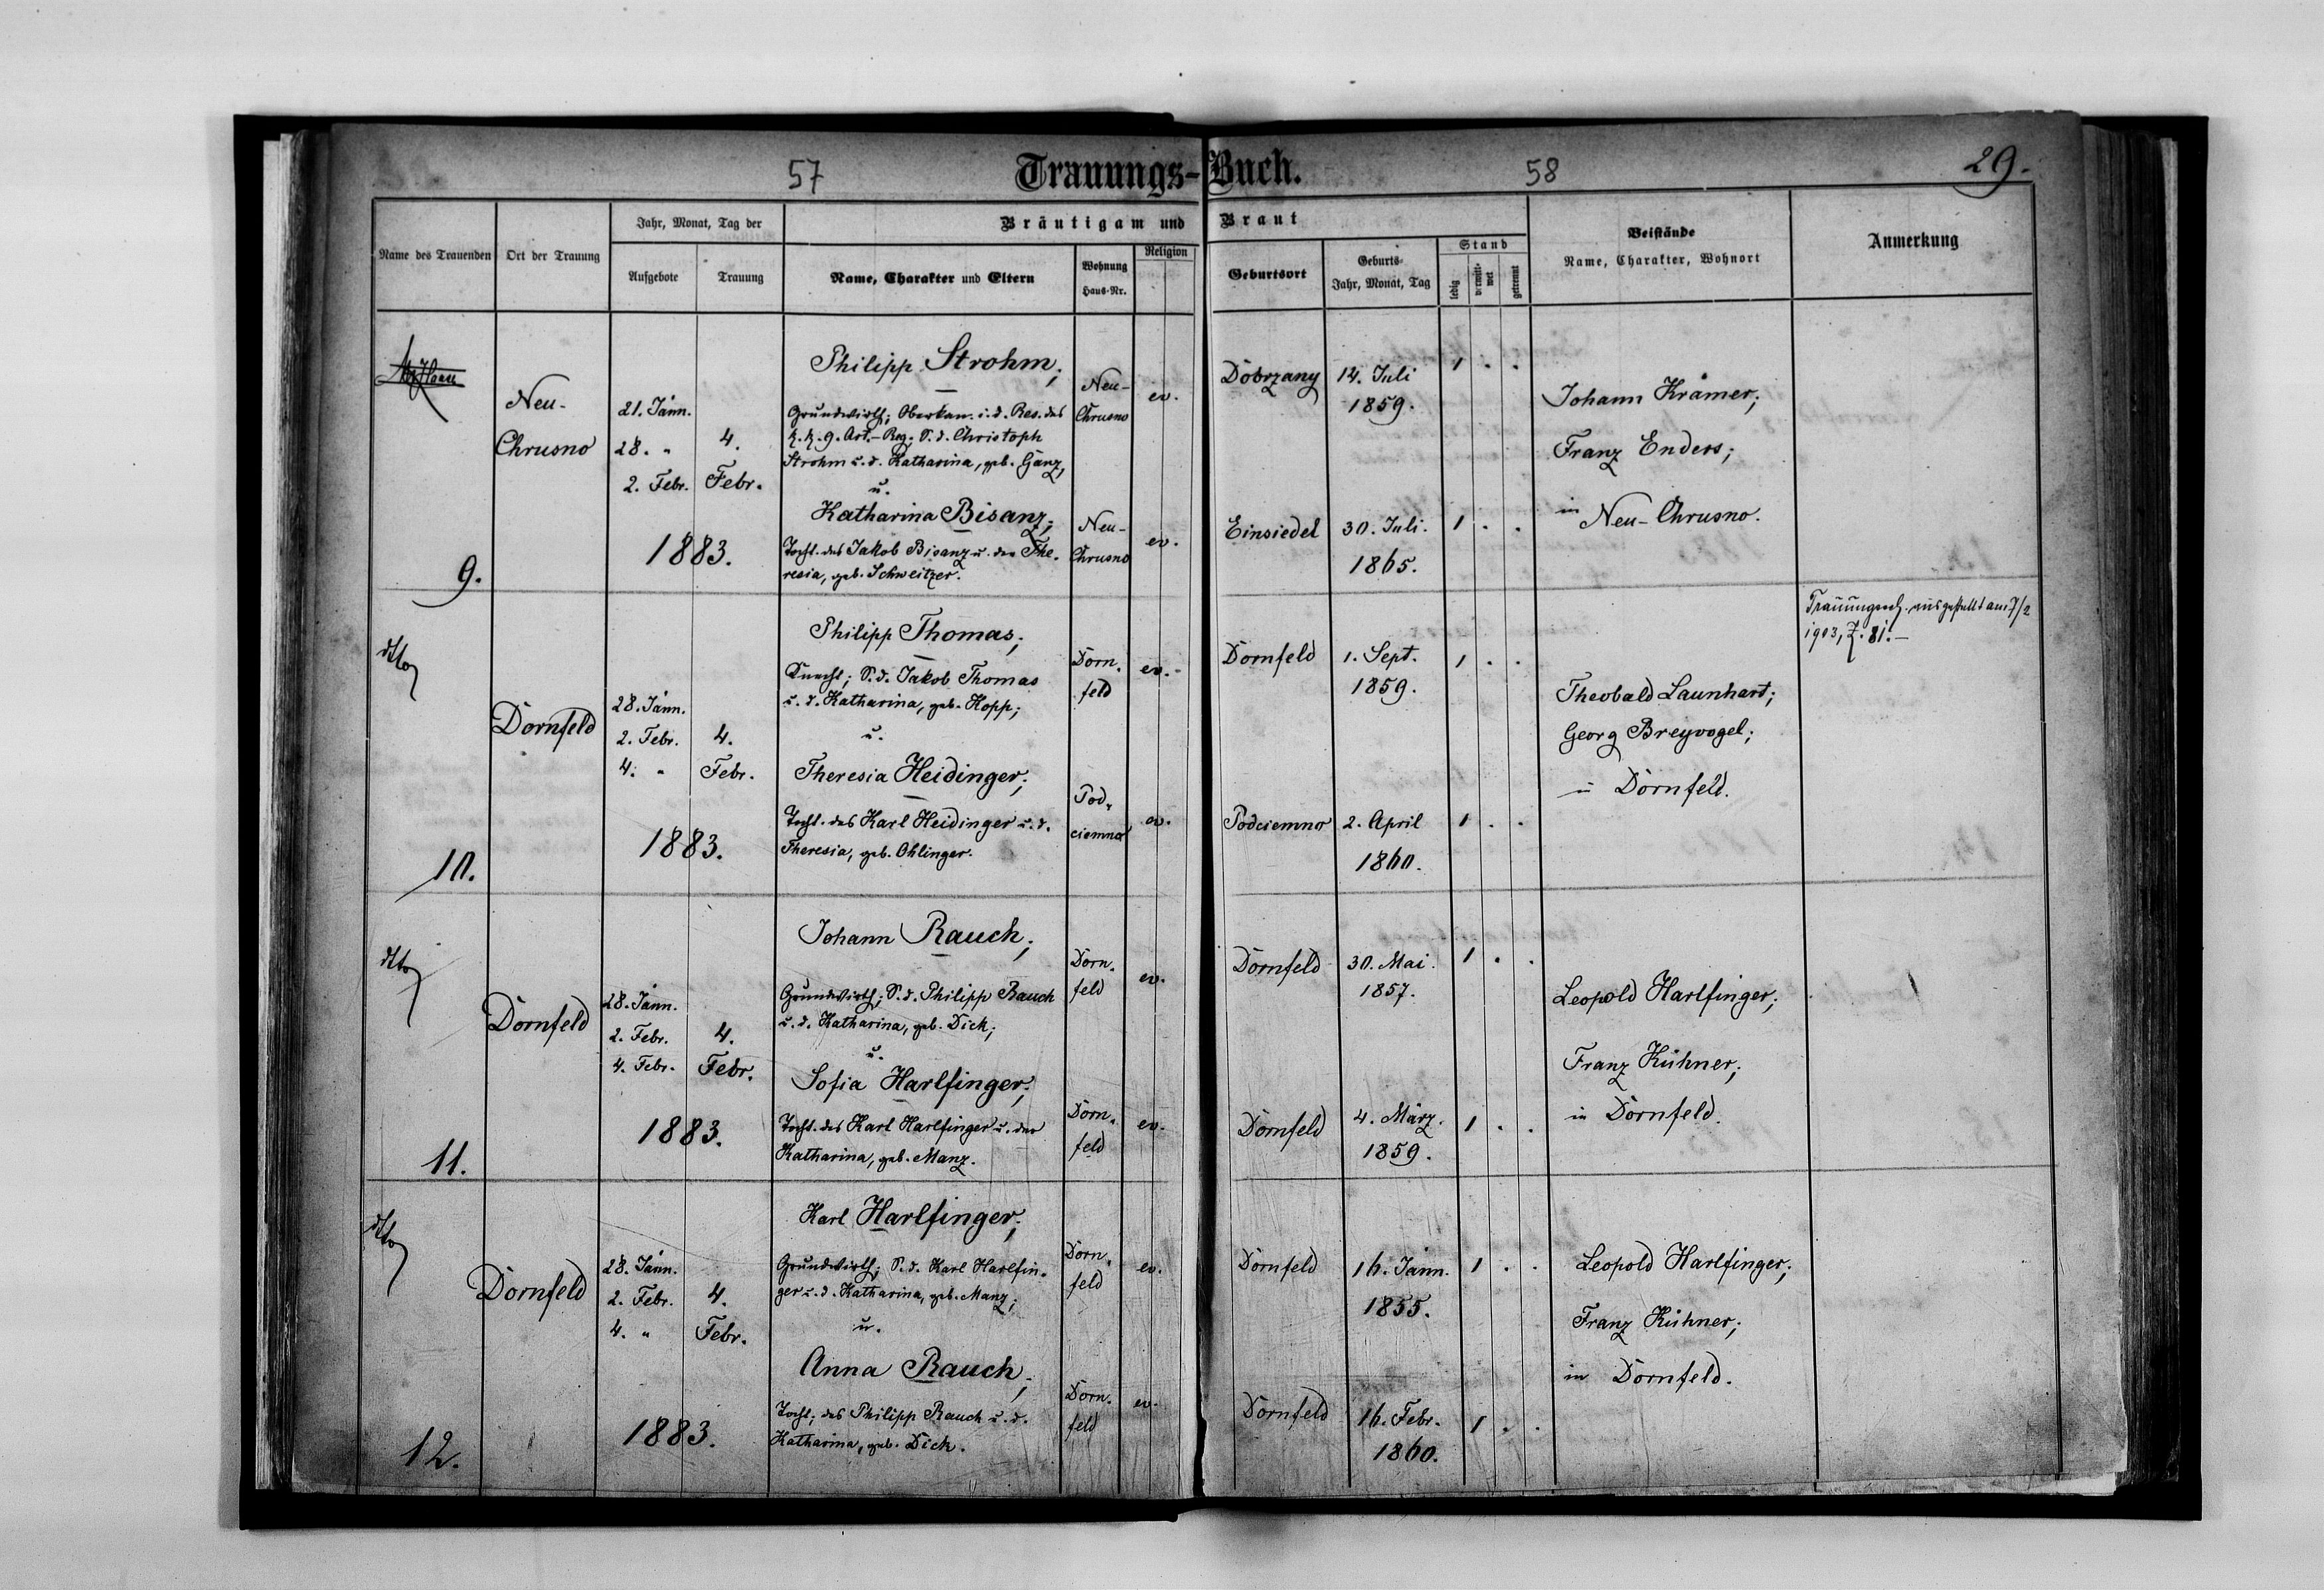 57
Trauungs-Buch.
58
29.
Bräutigam und Braut
Name des Trauenden
Ort der Trauung
Jahr, Monat, Tag der
Aufgebote
Trauung
Name, Charakter und Eltern
Wohnung
Haus-Nr.
Religion
Geburtsort
Geburts-
Jahr, Monat, Tag
Stand
ledig
verwitt-
wet
getrennt
Beistände
Name, Charakter, Wohnort
Anmerkung
9.
Neu-
Chrusno
21. Jänn.
28. "
2. Febr.
4.
Febr.
1883.
Philipp Strohm;
Grundwirth; Oberkan. i. d. Res. des
k. k. 9. Art.-Reg; S. d. Christoph
Strohm u. d. Katharina, geb. Ganz,
u.
Katharina Bisanz;
Tocht. des Jakob Bisanz u. der The-
resia, geb. Schweitzer.
Neu-
Chrusno
ev.
Neu-
Chrusno
ev.
Dobrzany
14. Juli
1859.
1 . .
Einsiedel
30. Juli.
1865.
1 . .
Johann Krämer;
Franz Enders;
in Neu-Chrusno.
dtto
10.
Dornfeld
28. Jänn.
2. Febr.
4. "
4.
Febr.
1883.
Philipp Thomas;
Knecht; S. d. Jakob Thomas
u. d. Katharina, geb. Kopp;
u.
Theresia Heidinger;
Tocht. des Karl Heidinger u. d.
Theresia, geb. Ohlinger.
Dorn-
feld
ev.
Pod-
ciemno
ev.
Dornfeld
1. Sept.
1859.
1 . .
Podciemno
2. April
1860.
1 . .
Theobald Launhart;
Georg Breyvogel;
in Dornfeld.
Trauungssch. ausgestellt am 7/2
1903, Z. 81.-
dtto
11.
Dornfeld
28. Jänn.
2. Febr.
4. Febr.
4.
Febr.
1883.
Johann Rauch;
Grundwirth; S. d. Philipp Rauch
u. d. Katharina, geb. Dick;
u.
Sofia Harlfinger;
Tocht. des Karl Harlfinger u. der
Katharina, geb. Manz.
Dorn-
feld
ev.
Dorn-
feld
ev.
Dornfeld
30. Mai.
1857.
1 . .
Dornfeld
4. März.
1859.
1 . .
Leopold Harlfinger;
Franz Kühner;
in Dornfeld.
dtto
12.
Dornfeld
28. Jänn.
2. Febr.
4. "
4.
Febr.
1883.
Karl Harlfinger;
Grundwirth; S. d. Karl Harlfin-
ger u. d. Katharina, geb. Manz;
u.
Anna Rauch;
Tocht; des Philipp Rauch u. d.
Katharina, geb. Dick.
Dorn-
feld
ev.
Dorn-
feld
ev.
Dornfeld
16. Jänn.
1855.
1 . .
Dornfeld
16. Febr.
1860.
1 . .
Leopold Harlfinger;
Franz Kühner;
in Dornfeld.